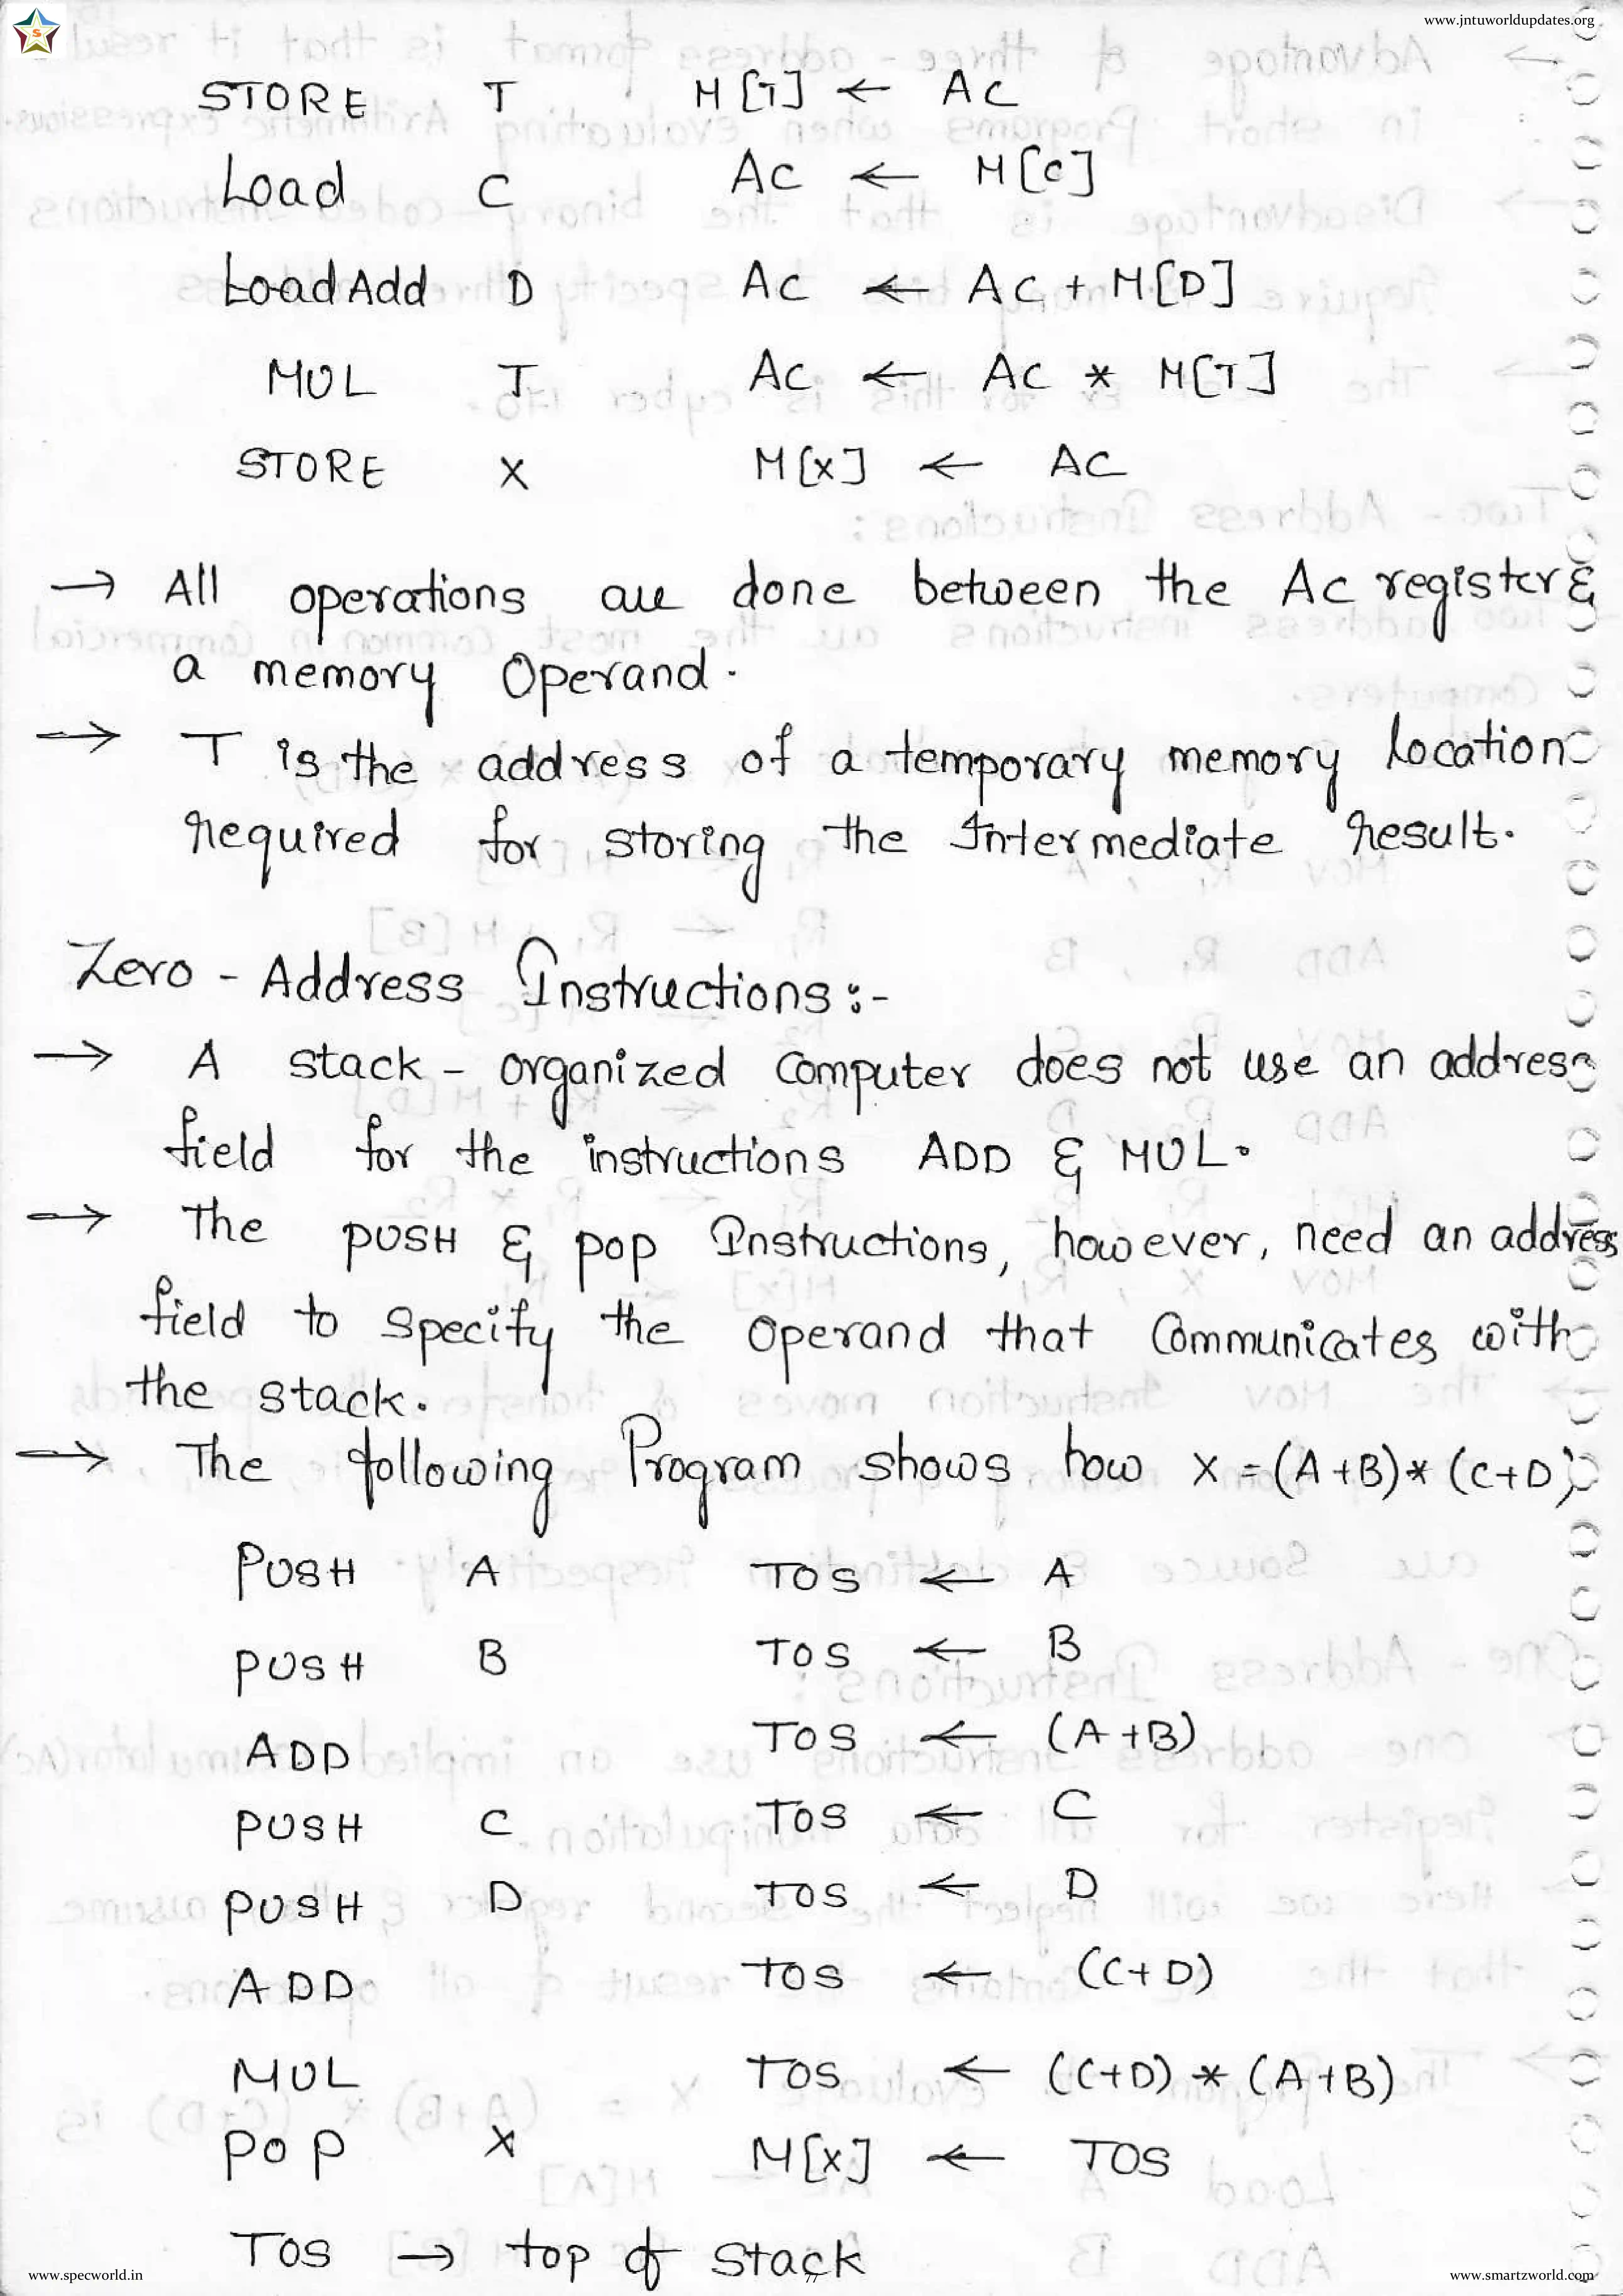 www.jntuworldupdates.org
S
STORE T M[T] ← AC
Load C AC ← M[C]
Load Add D AC ← AC + M[D]
MUL T AC ← AC * M[T]
STORE X M[X] ← AC
→ All operations are done between the AC register &
a memory Operand.
→ T is the address of a temporary memory location
required for storing the Intermediate result.
Zero - Address Instructions :-
→ A stack - organized computer does not use an address
field for the instructions ADD & MUL.
→ The PUSH & POP Instructions, however, need an address
field to specify the operand that communicates with
the stack.
→ The following Program shows how X = (A+B) * (C+D)
PUSH A TOS ← A
PUSH B TOS ← B
ADD TOS ← (A+B)
PUSH C TOS ← C
PUSH D TOS ← D
ADD TOS ← (C+D)
MUL TOS ← (C+D) * (A+B)
POP X M[X] ← TOS
TOS → top of stack
www.specworld.in 77 www.smartzworld.com